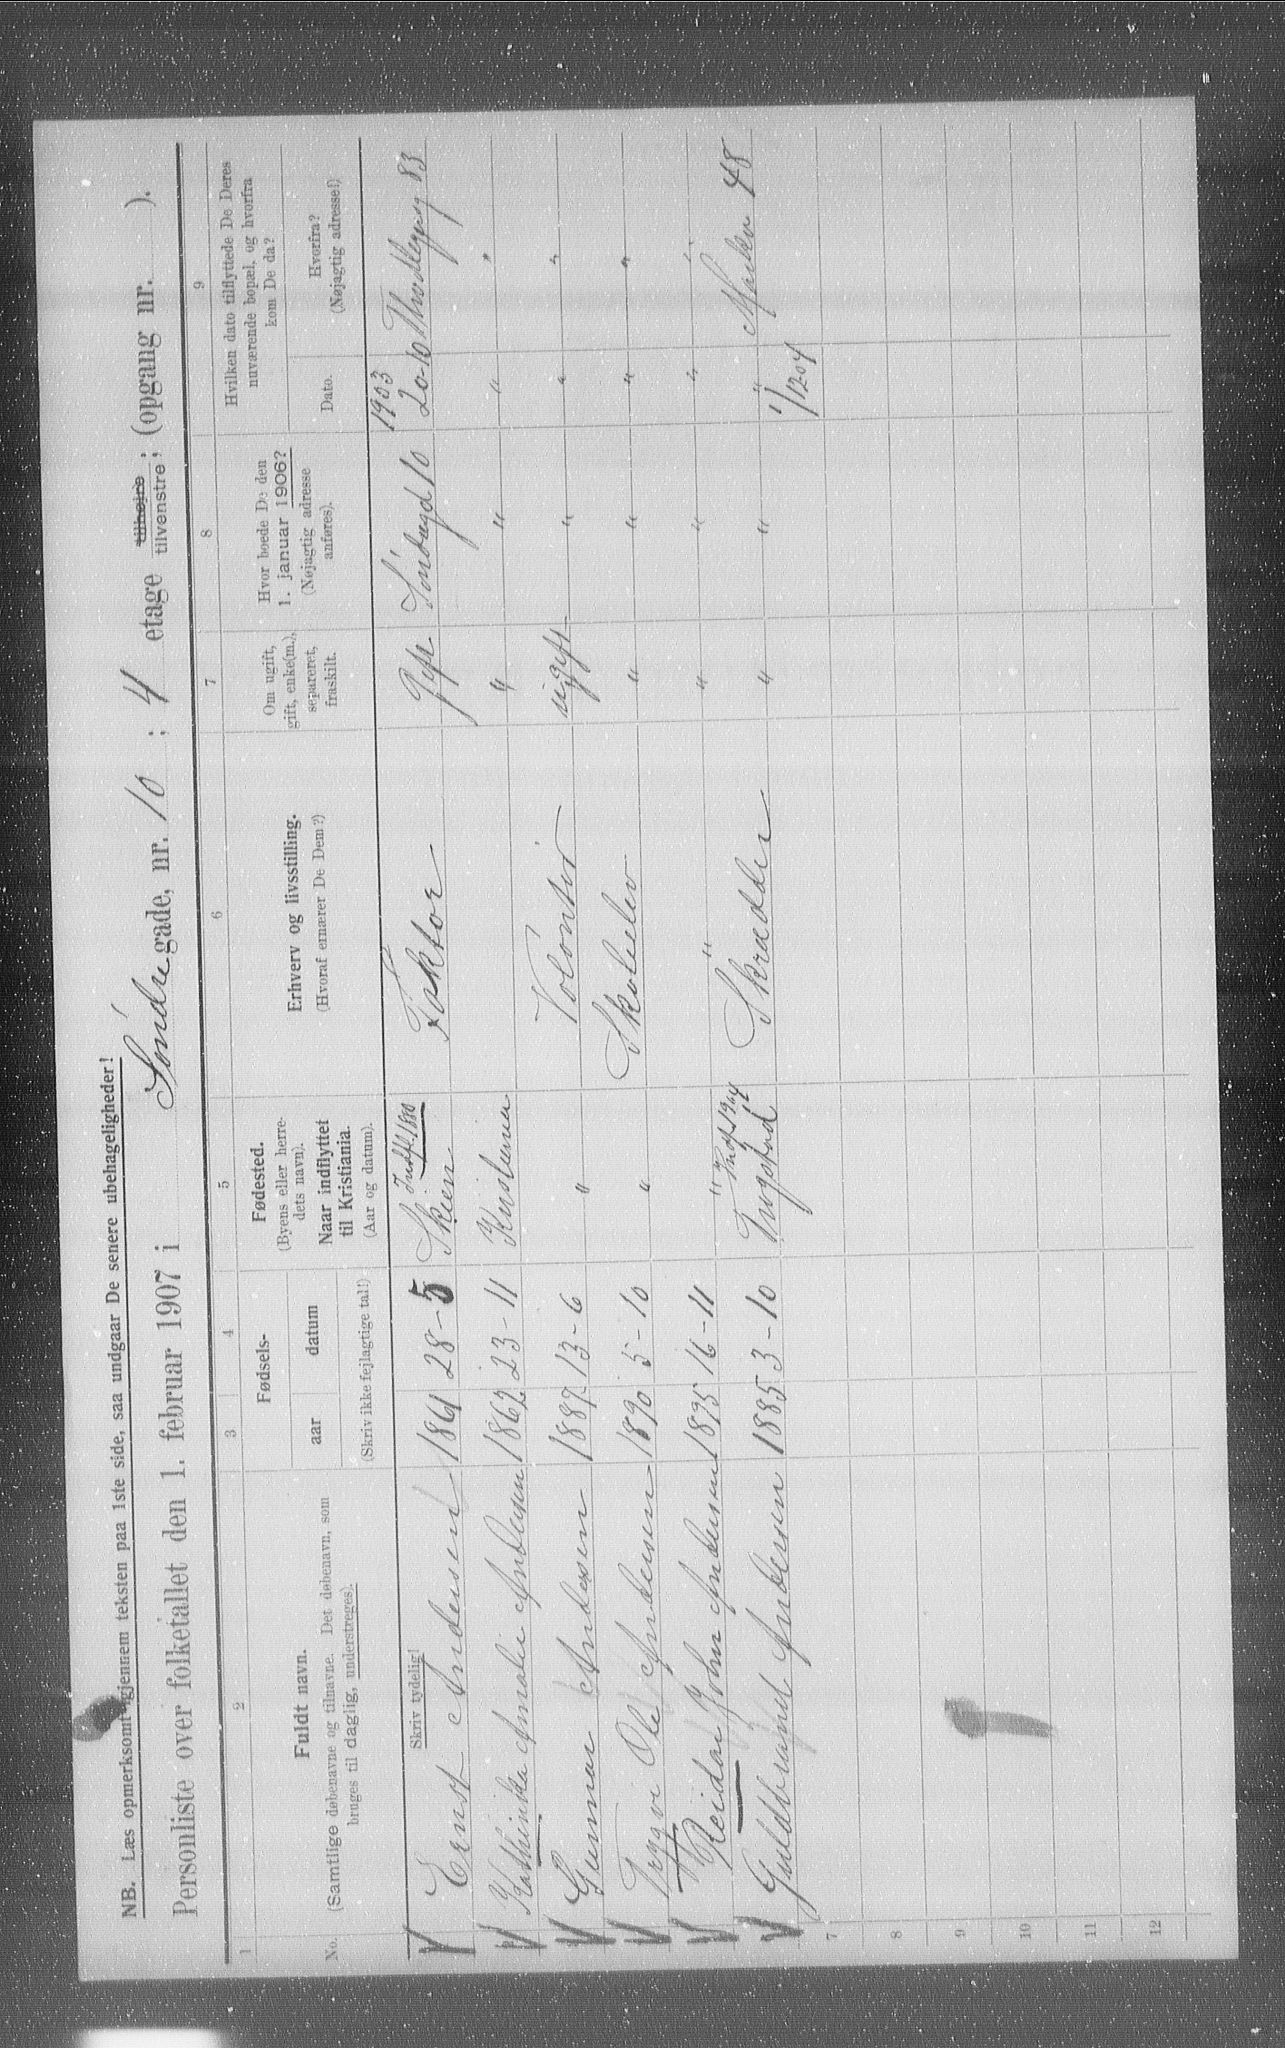 NB. Læs opmerksomt igjennem teksten paa 1ste side, saa undgaar De senere ubehageligheder!
Personliste over folketallet den 1. februar 1907 i Søndre gade, nr. 10 ; 4 etage tilhøjre tilvenstre ; (opgang nr. ).
1 2 3 4 5 6 7 8 9
No.
Fuldt navn.
(Samtlige døbenavne og tilnavne. Det døbenavn, som
bruges til daglig, understreges).
Fødsels-
aar datum
(Skriv ikke fejlagtige tal!)
Fødested.
(Byens eller herre-
dets navn).
Naar indflyttet
til Kristiania.
(Aar og datum).
Erhverv og livsstilling.
(Hvoraf ernærer De Dem?)
Om ugift,
gift, enke(m.),
separeret,
fraskilt.
Hvor boede De den
1. januar 1906?
(Nøjagtig adresse
anføres).
Hvilken dato tilflyttede De Deres
nuværende bopæl, og hvorfra
kom De da?
Dato.
Hvorfra?
(Nøjagtig adresse!)
Skriv tydelig!
Indfl. 1880 1903
Ernst Andersen 1861 28-5 Skien Faktor Gift 10 20-10 83
Kathinka Amalie Andersen 1862 23-11 Kristiania " " " "
Gunnar Andersen 1887 13-6 " Volontør ugift " " "
Trygve Ole Andersen 1890 5-10 " Skoleelev " " " "
Reidar John Andersen 1895 16-11 " " " " " "
Indf. 1904
Guldbrand Andersen 1885 3-10 Trøgstad Skrædder " " " 48
1/12 04
7
8
9
10
11
12